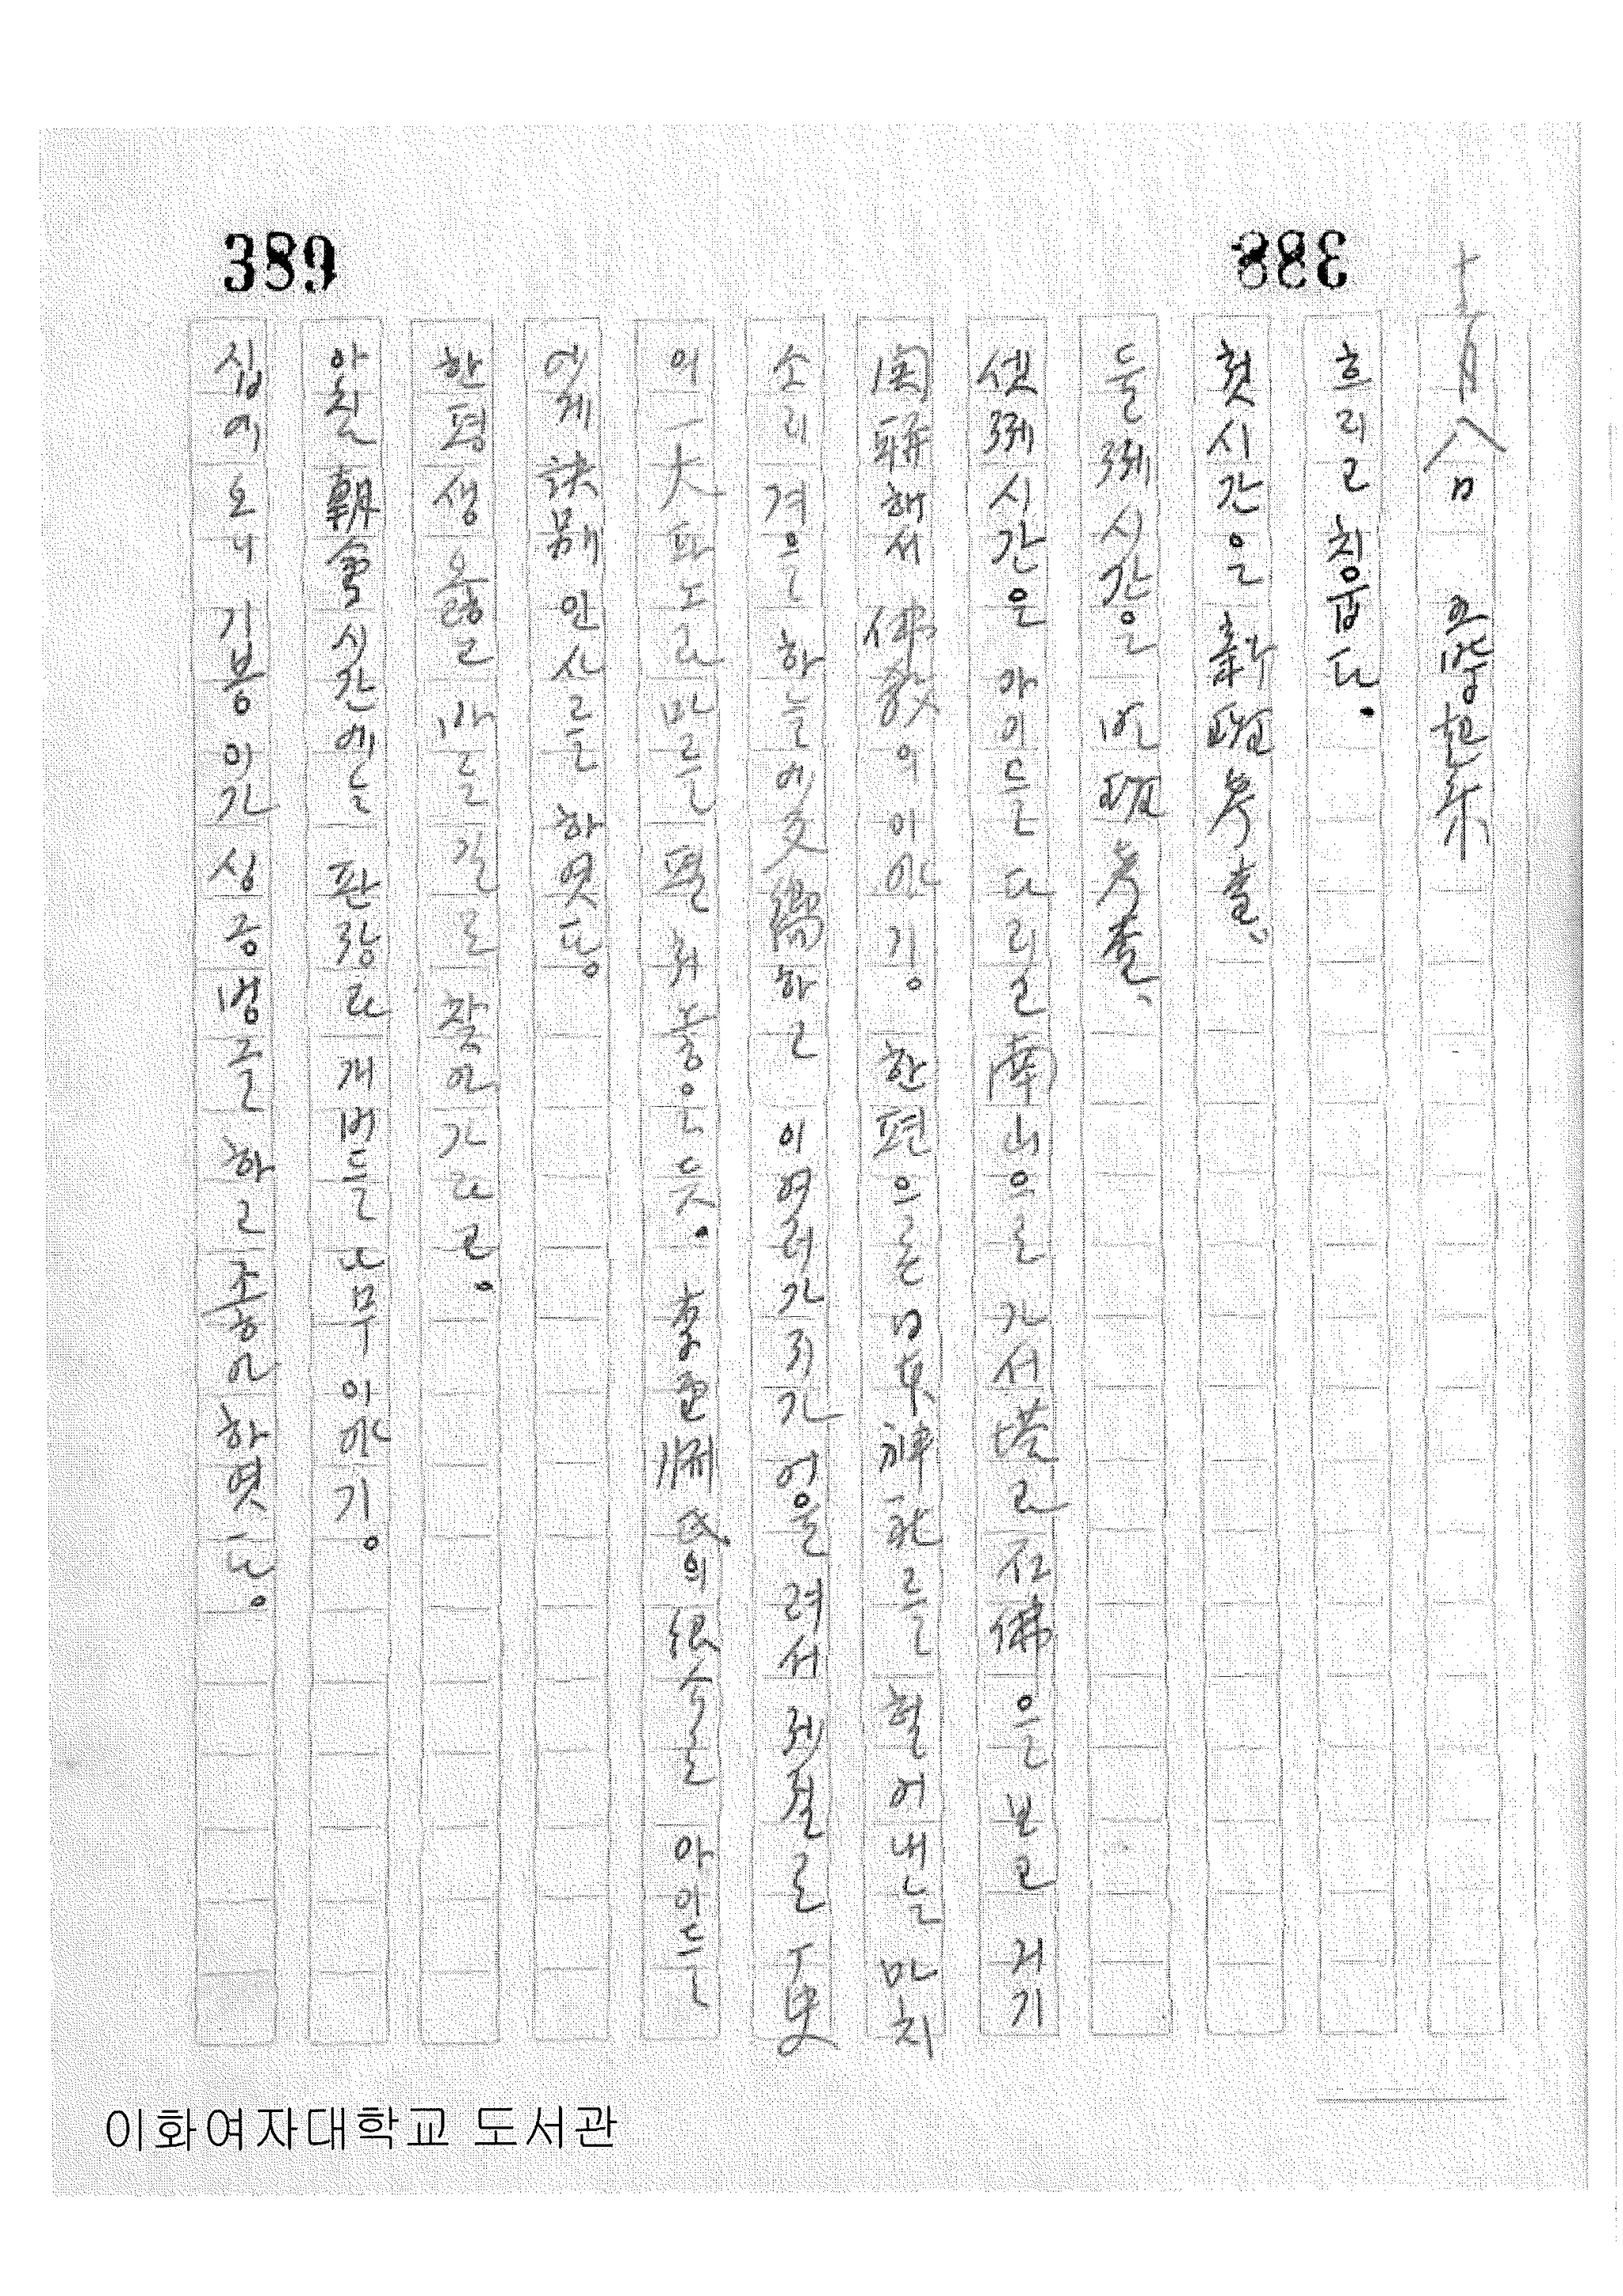 389
388
十一月八日
흐리고 칩웁다.
첫시간은 新班考査.
둘재시간은 班考査.
셋재시간은 아이들 다리고 南山으로 가서 塔과 石佛을 보고 거기
関聯해서 佛敎의 이야기. 한편으론 日本神社를 헐어내는 마치
소리 겨은 하늘에 交響하고 이 여러가지가 어울려서 제절로 歷史
의 一大 파노라마를 펼처 놓은 듯. 李 氏의 으로 아이들
에게 訣別 인사를 하엿다.
한평생 옳고 바른길로 찾아가라고.
아츰 朝會시간에는 판장과 개버들 나무 이야기.
집에 오니 기봉이가 심증병을 하고 조하 하엿다.
이화여자대학교 도서관